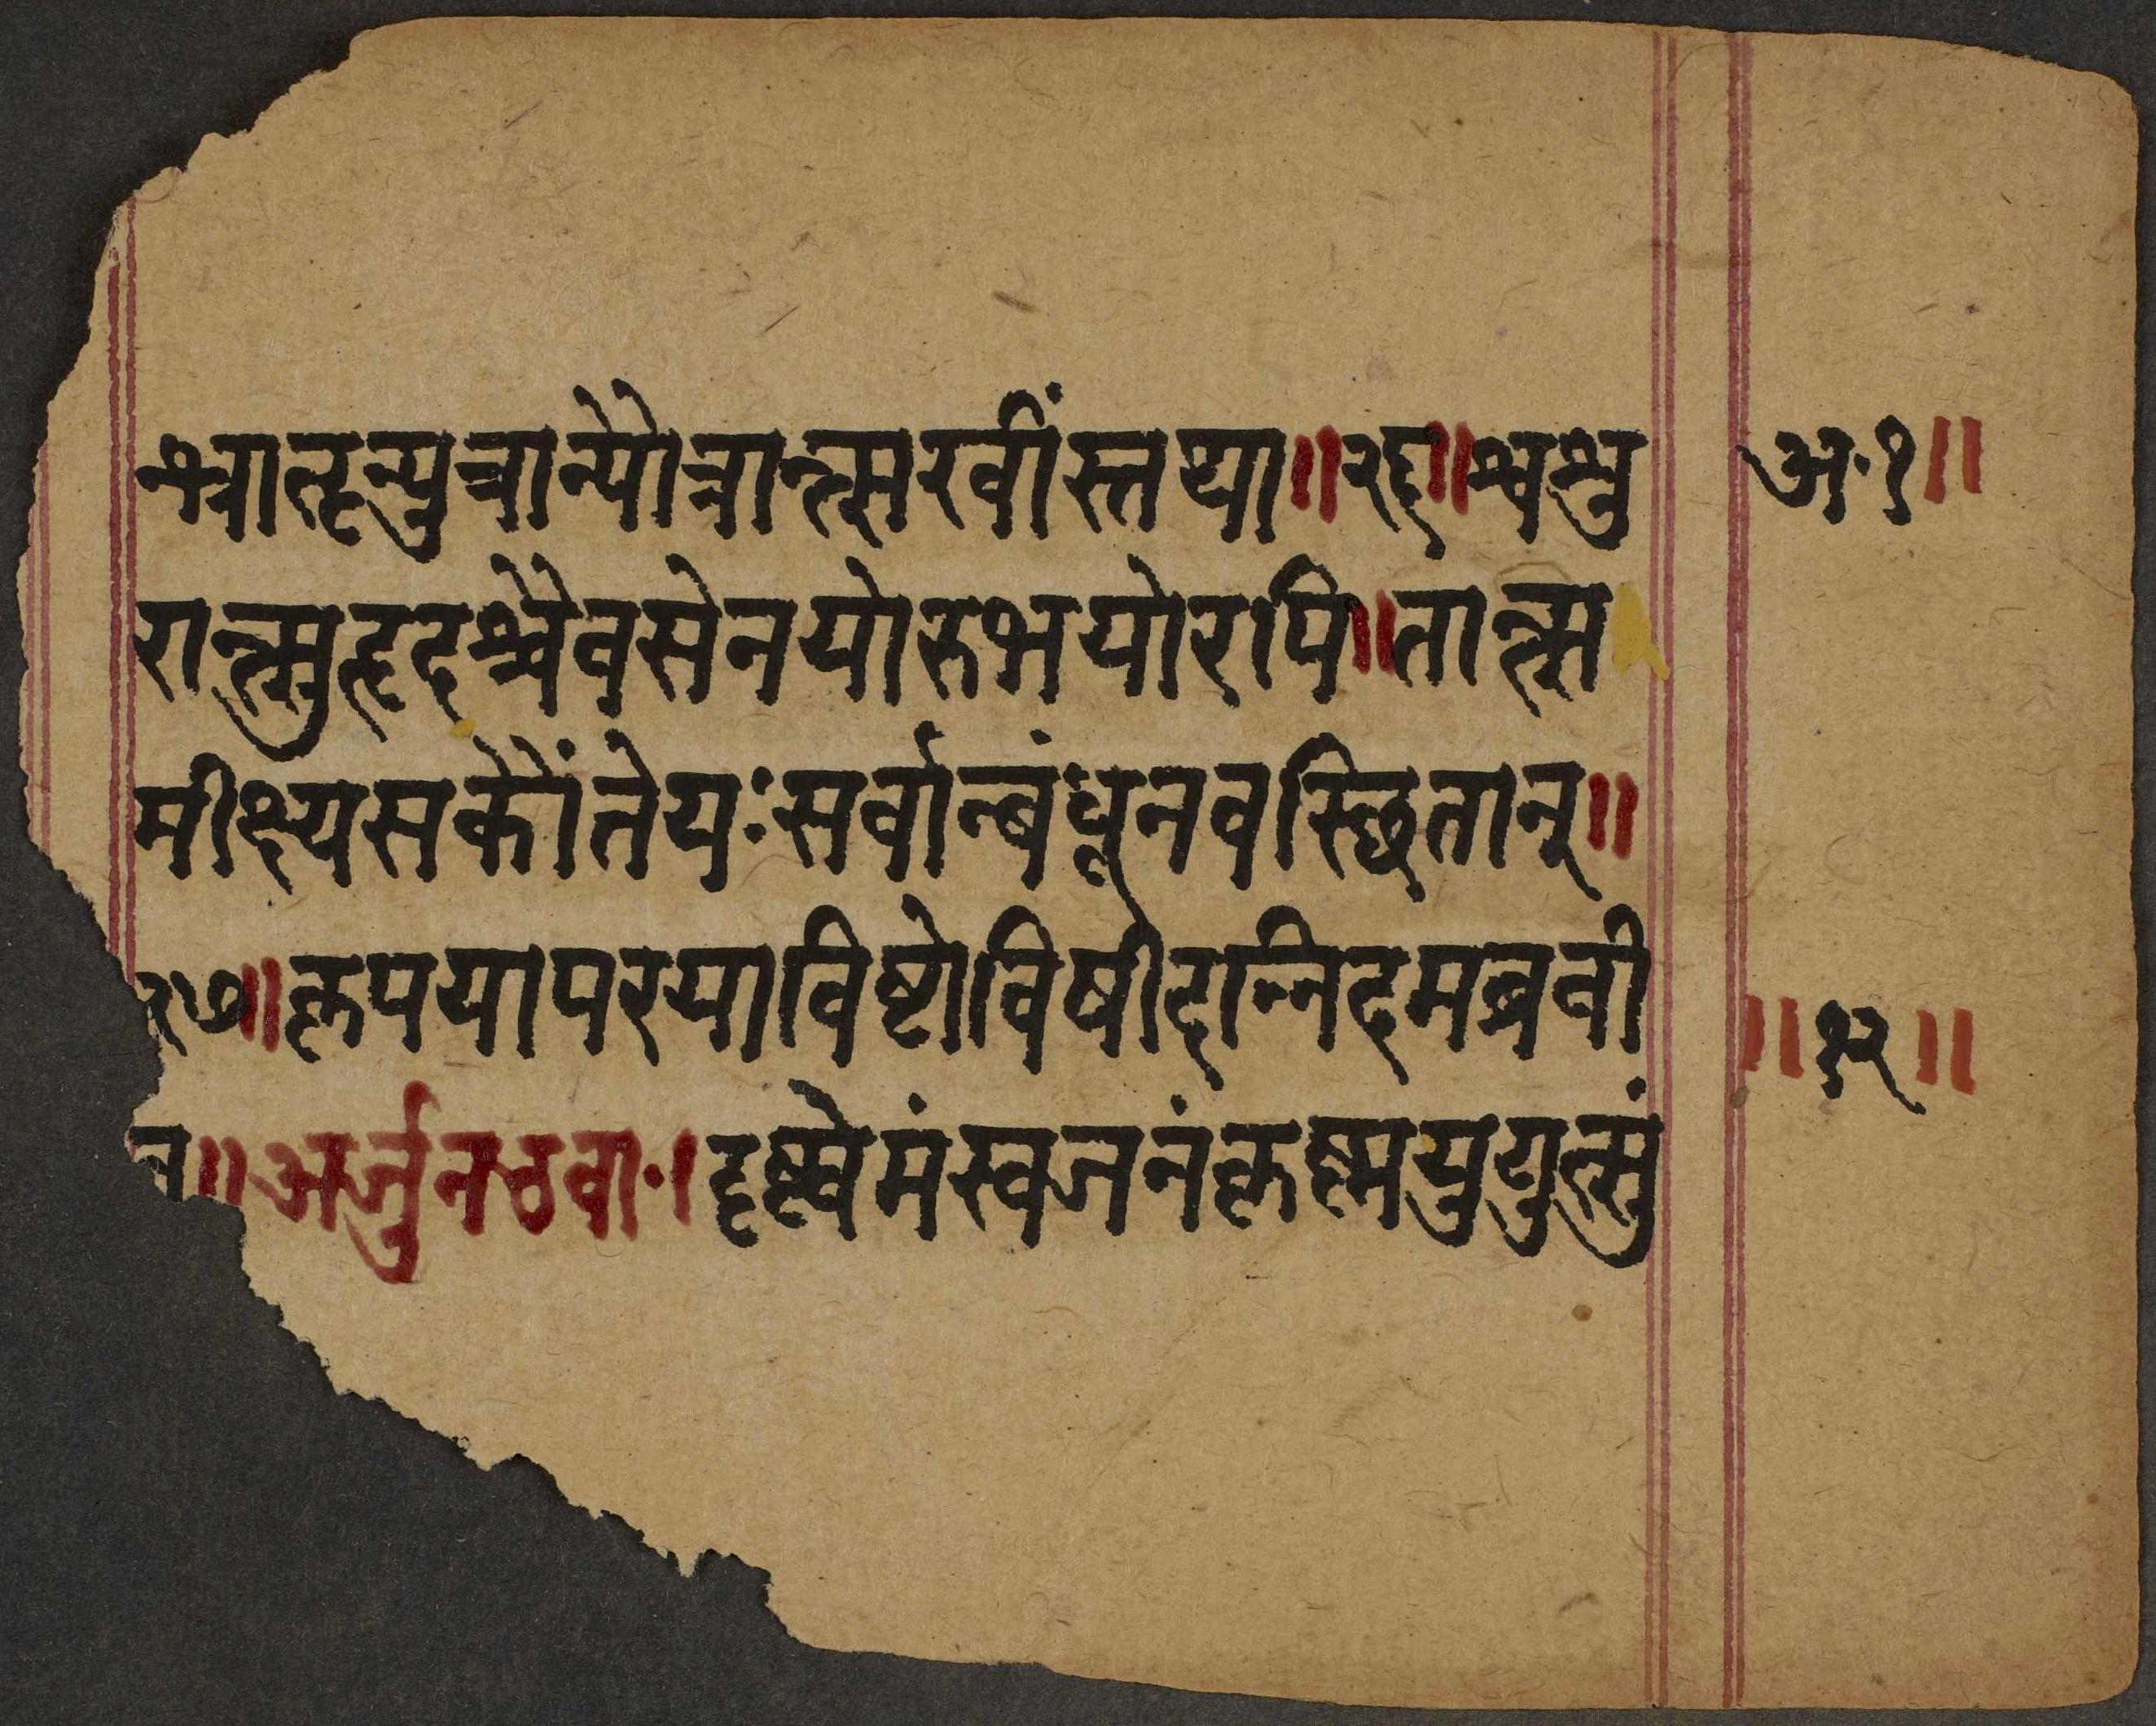 भ्रातॄन्पुत्रान्पौत्रान्सखींस्तथा॥२६॥श्वशु
रान्सुहृदश्चैवसेनयोरुभयोरपि॥तान्स
मीक्ष्यसकौंतेयःसर्वान्बंधूनवस्थितान्॥
२७॥कृपयापरयाविष्टोविषीदन्निदमब्रवी
त्॥अर्जुनउवा॰।दृष्ट्वेमंस्वजनंकृष्णयुयुत्सुं
अ॰१॥
॥१२॥